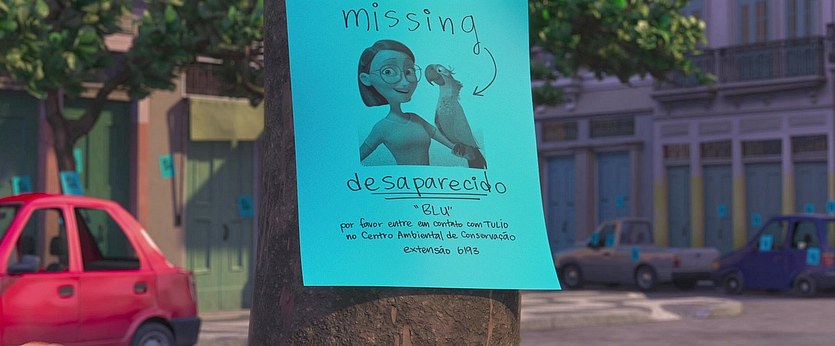 missing
desaparecido
"BLU"
por favor entre em contato com TULIO
no Centro Ambiental de Conservação
extensão 6193